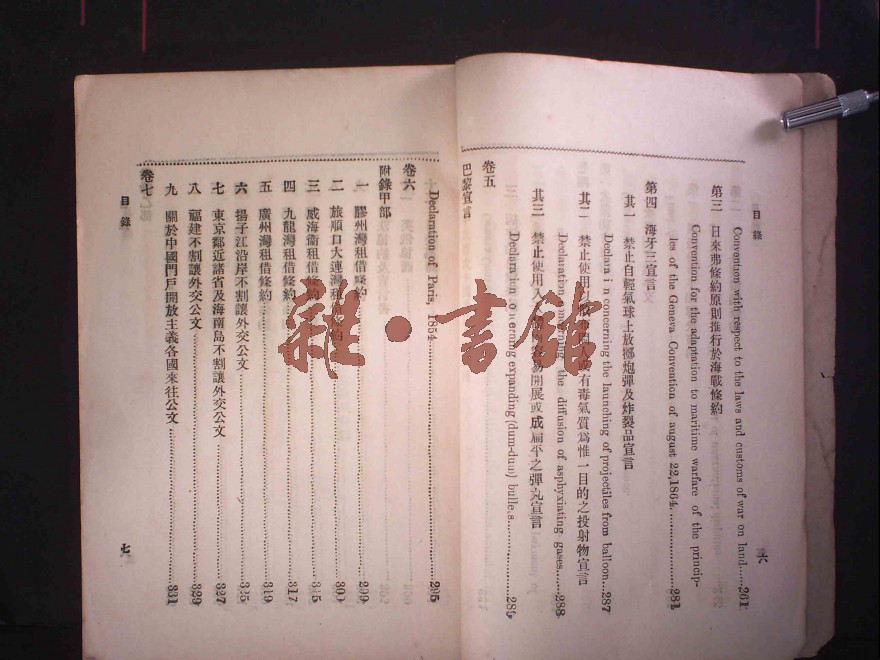 目錄
六
Convention with respect to the laws and customs of war on land......261
第三 日來弗條約原則推行於海戰條約
Convention for the adaptation to maritime warfare of the princip-
les of the Geneva Convention of august 22,1864.
第四 海牙三宣言
其一 禁止自輕氣球上放擲炮彈及炸裂品宣言
concerning the launching of projectiles from balloon...287
其二 禁止使用 有毒氣質爲惟一目的之投射物宣言
Declaration concerning the diffusion of asphyxiating gases.........288
其三 禁止使用入 易開展或成扁平之彈丸宣言
expanding (dum-dum)
卷五
巴黎宣言
Declaration of Paris, 1854.........295
卷六
附錄甲部
一 膠州灣租借條約.........299
二 旅順口大連灣租借條約
三 威海衞租借條約
四 九龍灣租借條約.........317
五 廣州灣租借條約.........319
六 揚子江沿岸不割讓外交公文
七 東京鄰近諸省及海南島不割讓外交公文.........327
八 福建不割讓外交公文
九 關於中國門戶開放主義各國來往公文.........331
卷七
目錄
七
雜·書館